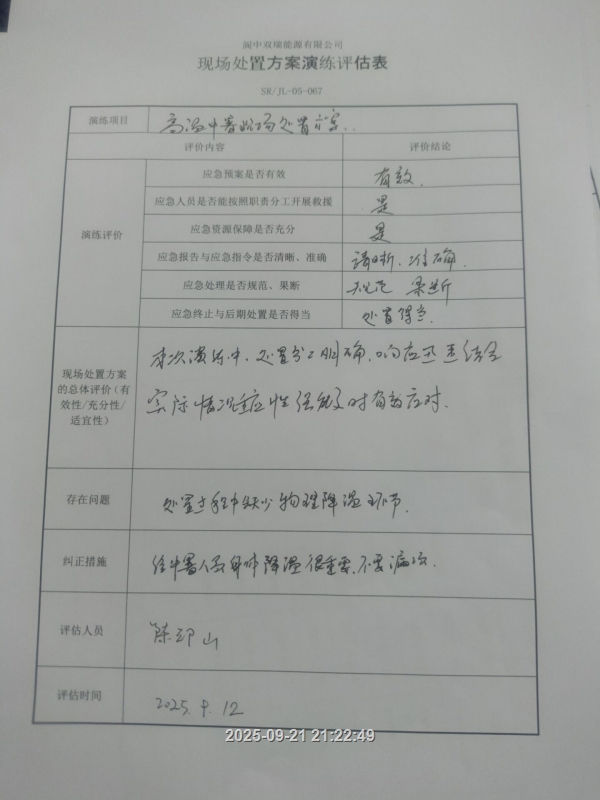 阆中双瑞能源有限公司
现场处置方案演练评估表
SR/JL-05-067
演练项目 高温中暑现场处置方案.
评价内容 评价结论
演练评价
应急预案是否有效 有效.
应急人员是否能按照职责分工开展救援 是
应急资源保障是否充分 是
应急报告与应急指令是否清晰、准确 清晰、准确.
应急处理是否规范、果断 规范 果断
应急终止与后期处置是否得当 处置得当.
现场处置方案的总体评价(有效性/充分性/适宜性)
本次演练中,处置分工明确,响应迅速结合
实际情况适应性强能及时有效应对.
存在问题 处置过程中缺少物理降温环节.
纠正措施 给中暑人员身体降温很重要,不要漏项.
评估人员 陈邛山
评估时间 2025.9.12
2025-09-21 21:22:49